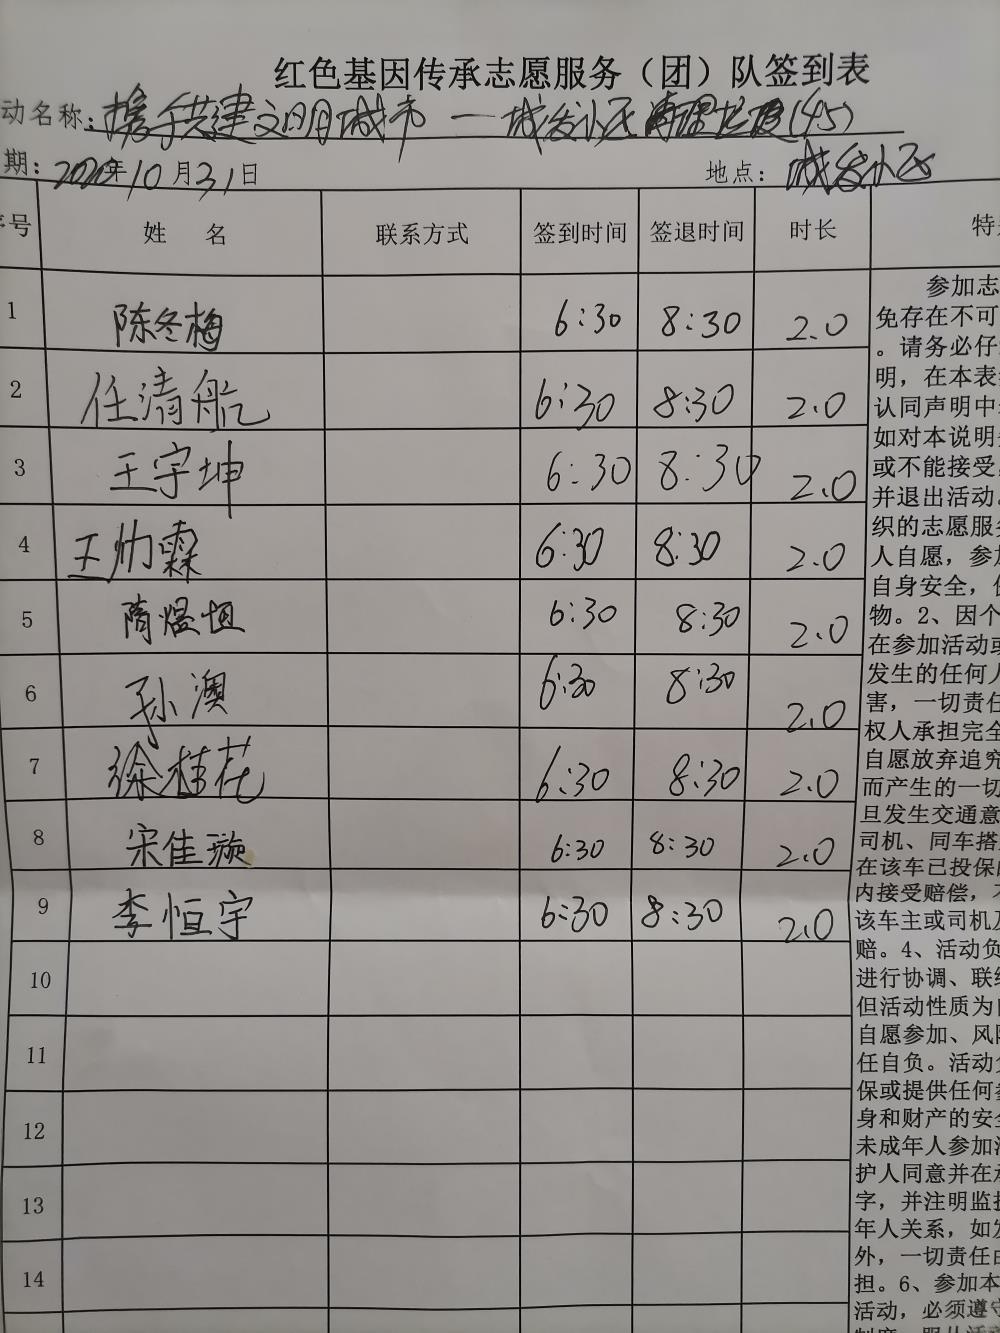 红色基因传承志愿服务（团）队签到表
动名称：携手共建文明城市——城发小区清理垃圾(45)
期：2020年10月31日 地点：城发小区
序号 姓 名 联系方式 签到时间 签退时间 时长 特
1 陈冬梅 6:30 8:30 2.0
2 任清航 6:30 8:30 2.0
3 王宇坤 6:30 8:30 2.0
4 王帅霖 6:30 8:30 2.0
5 隋煜恒 6:30 8:30 2.0
6 孙澳 6:30 8:30 2.0
7 徐桂花 6:30 8:30 2.0
8 宋佳璇 6:30 8:30 2.0
9 李恒宇 6:30 8:30 2.0
10
11
12
13
14
参加志
免存在不可
。请务必仔
明，在本表
认同声明中
如对本说明
或不能接受
并退出活动。
织的志愿服务
人自愿，参加
自身安全，
物。2、因个
在参加活动或
发生的任何人
害，一切责任
权人承担完全
自愿放弃追究
而产生的一切
旦发生交通意
司机、同车搭
在该车已投保
内接受赔偿，不
该车主或司机及
赔。4、活动负
进行协调、联络
但活动性质为自
自愿参加、风险
任自负。活动负
保或提供任何
身和财产的安全
未成年人参加活
护人同意并在承
字，并注明监护
年人关系，如发
外，一切责任由
担。6、参加本
活动，必须遵守